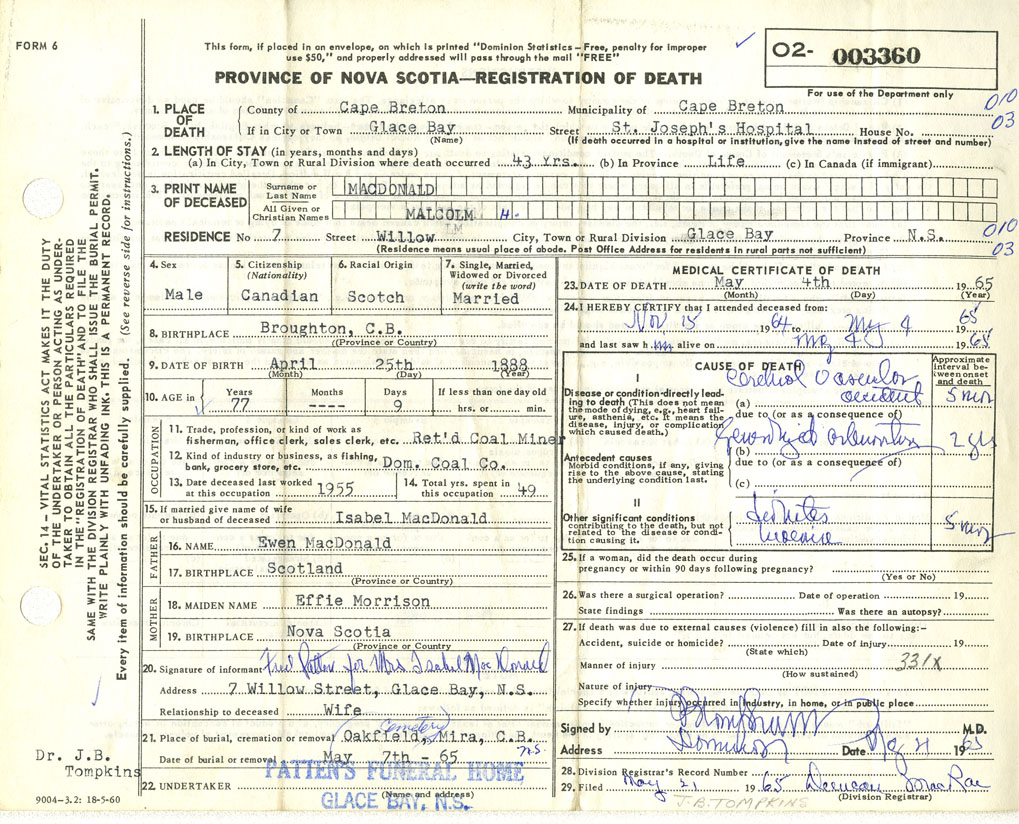 FORM 6
This form, if placed in an envelope, on which is printed "Dominion Statistics—Free, penalty for improper
use $50," and properly addressed will pass through the mail "FREE"
PROVINCE OF NOVA SCOTIA—REGISTRATION OF DEATH
02- 003360
For use of the Department only
010
03
1. PLACE OF DEATH
County of Cape Breton Municipality of Cape Breton
If in City or Town Glace Bay Street St. Joseph's Hospital House No.
(Name) (If death occurred in a hospital or institution, give the name instead of street and number)
2. LENGTH OF STAY (in years, months and days)
(a) In City, Town or Rural Division where death occurred 43 yrs. (b) In Province Life (c) In Canada (if immigrant)
3. PRINT NAME OF DECEASED
Surname or Last Name MACDONALD
All Given or Christian Names MALCOLM H.
LM
RESIDENCE No 7 Street Willow City, Town or Rural Division Glace Bay Province N.S.
(Residence means usual place of abode. Post Office Address for residents in rural parts not sufficient)
010
03
4. Sex
Male
5. Citizenship
(Nationality)
Canadian
6. Racial Origin
Scotch
7. Single, Married,
Widowed or Divorced
(write the word)
Married
8. BIRTHPLACE Broughton, C.B.
(Province or Country)
9. DATE OF BIRTH April 25th 1888
(Month) (Day) (Year)
10. AGE in
Years
77
Months
----
Days
9
If less than one day old
hrs. or min.
OCCUPATION
11. Trade, profession, or kind of work as
fisherman, office clerk, sales clerk, etc. Ret'd Coal Miner
12. Kind of industry or business, as fishing,
bank, grocery store, etc. Dom. Coal Co.
13. Date deceased last worked
at this occupation 1955
14. Total yrs. spent in
this occupation 49
15. If married give name of wife
or husband of deceased Isabel MacDonald
FATHER
16. NAME Ewen MacDonald
17. BIRTHPLACE Scotland
(Province or Country)
MOTHER
18. MAIDEN NAME Effie Morrison
19. BIRTHPLACE Nova Scotia
(Province or Country)
20. Signature of informant Fred Patten for Mrs Isabel MacDonald
Address 7 Willow Street, Glace Bay, N.S.
Relationship to deceased Wife
Cemetery
21. Place of burial, cremation or removal Oakfield, Mira, C.B.
N.S.
Date of burial or removal May 7th - 65
22. UNDERTAKER PATTEN'S FUNERAL HOME
(Name and address)
GLACE BAY, N.S.
MEDICAL CERTIFICATE OF DEATH
23. DATE OF DEATH May 4th 1965
(Month) (Day) (Year)
24. I HEREBY CERTIFY that I attended deceased from:
Nov 15 1964 to May 4 1965
and last saw him alive on May 4 1965
CAUSE OF DEATH
Approximate interval between onset and death
I
Disease or condition directly leading to death (This does not mean the mode of dying, e.g., heart failure, asthenia, etc. It means the disease, injury, or complication which caused death.)
(a) Cerebral Vascular accident
due to (or as a consequence of)
Antecedent causes
Morbid conditions, if any, giving rise to the above cause, stating the underlying condition last.
(b) 2 yrs
due to (or as a consequence of)
(c)
II
Other significant conditions
contributing to the death, but not related to the disease or condition causing it.
25. If a woman, did the death occur during
pregnancy or within 90 days following pregnancy?
(Yes or No)
26. Was there a surgical operation? Date of operation 19
State findings Was there an autopsy?
27. If death was due to external causes (violence) fill in also the following:—
Accident, suicide or homicide? Date of injury 19
(State which)
Manner of injury 331X
(How sustained)
Nature of injury
Specify whether injury occurred in industry, in home, or in public place
Signed by M.D.
Address Dominion Date May 21 1965
28. Division Registrar's Record Number
29. Filed May 21 1965 Duncan MacRae
(Division Registrar)
J.B. TOMPKINS
Dr. J.B.
Tompkins
9004-3.2: 18-5-60
SEC. 14 — VITAL STATISTICS ACT MAKES IT THE DUTY
OF THE UNDERTAKER OR PERSON ACTING AS UNDER-
TAKER TO OBTAIN ALL THE PARTICULARS REQUIRED
IN THE "REGISTRATION OF DEATH" AND TO FILE THE
SAME WITH THE DIVISION REGISTRAR WHO SHALL ISSUE THE BURIAL PERMIT.
WRITE PLAINLY WITH UNFADING INK. THIS IS A PERMANENT RECORD.
Every item of information should be carefully supplied. (See reverse side for instructions.)